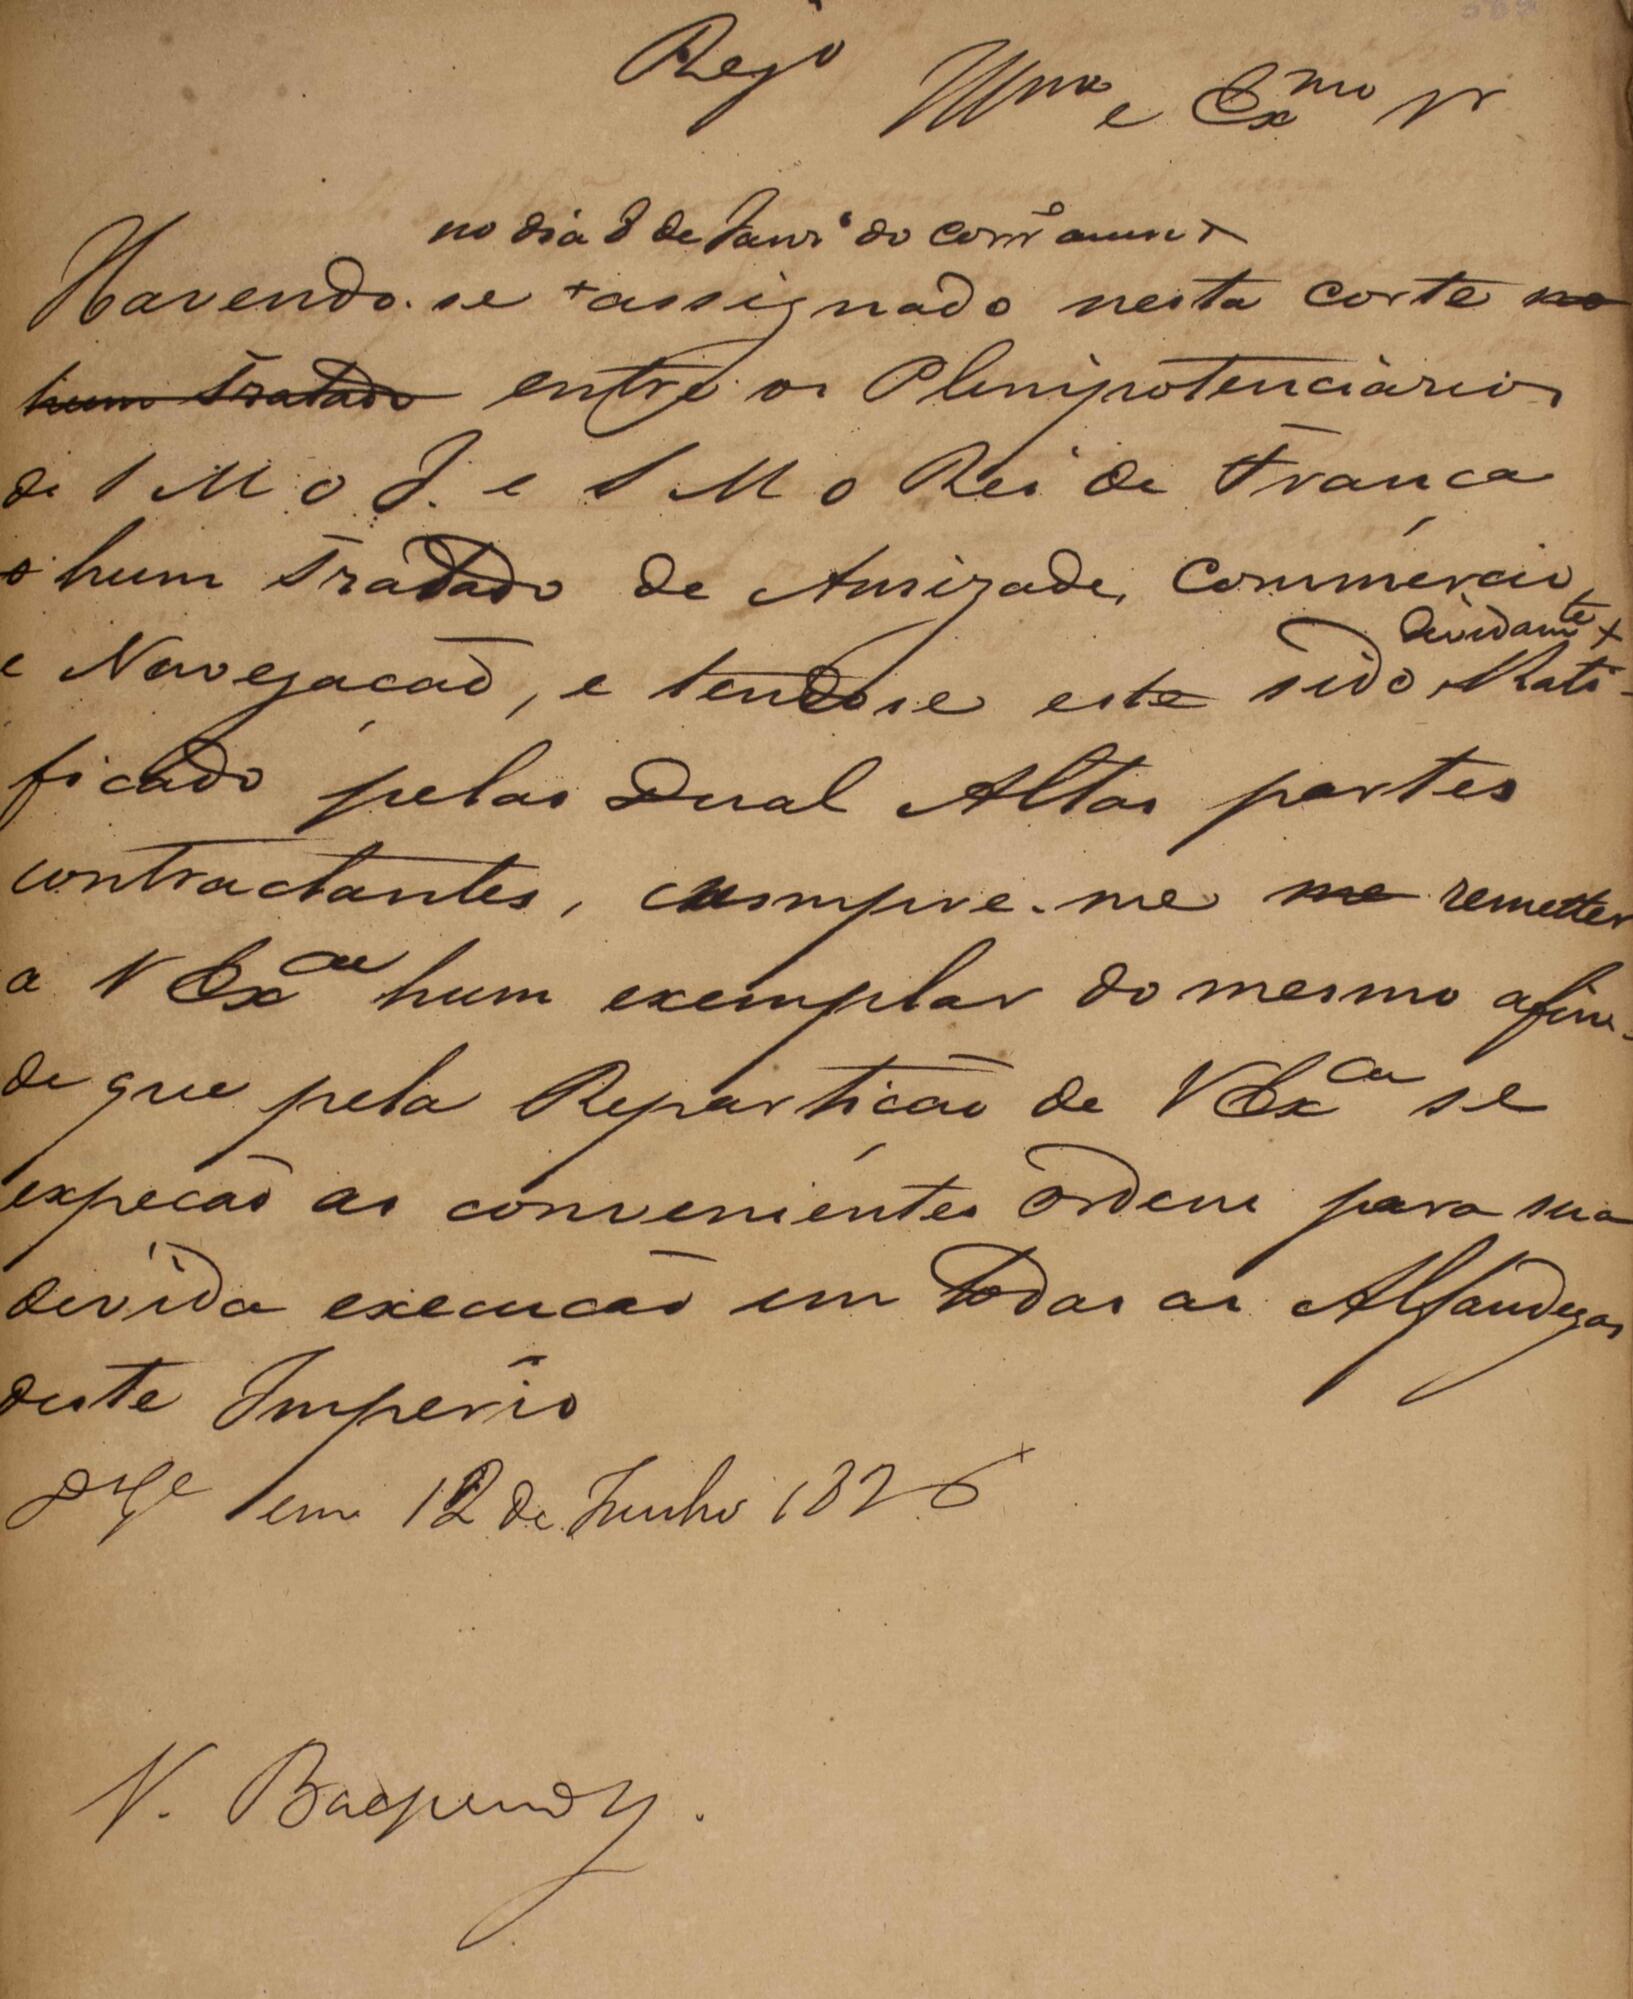 Reg.o
Illmo e Exmo Sr
no dia 8 de Janro do corre anno +
Havendo-se + assignado nesta corte no
hum Tratado entre os Plenipotenciarios
de S M o I. e S M o Rei de França
o hum Tratado de Amizade, Commercio,
devidamte +
e Navegação, e tendo se este sido Rati-
ficado pelas Duas Altas partes
contractantes, cumpre-me me remetter
a V Exca hum exemplar do mesmo afim
de que pela Repartição de V Exca se
expeção as convenientes ordens para sua
devida execução em todas as Alfandegas
deste Imperio
em 12 de Junho 1826
V. Baependy.